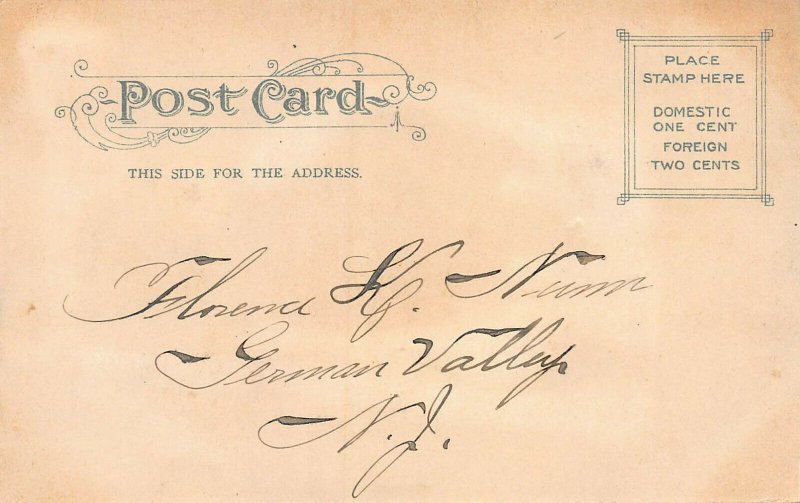 Post Card
THIS SIDE FOR THE ADDRESS.
PLACE
STAMP HERE
DOMESTIC
ONE CENT
FOREIGN
TWO CENTS
Florence K. Nunn
German Valley
N.J.